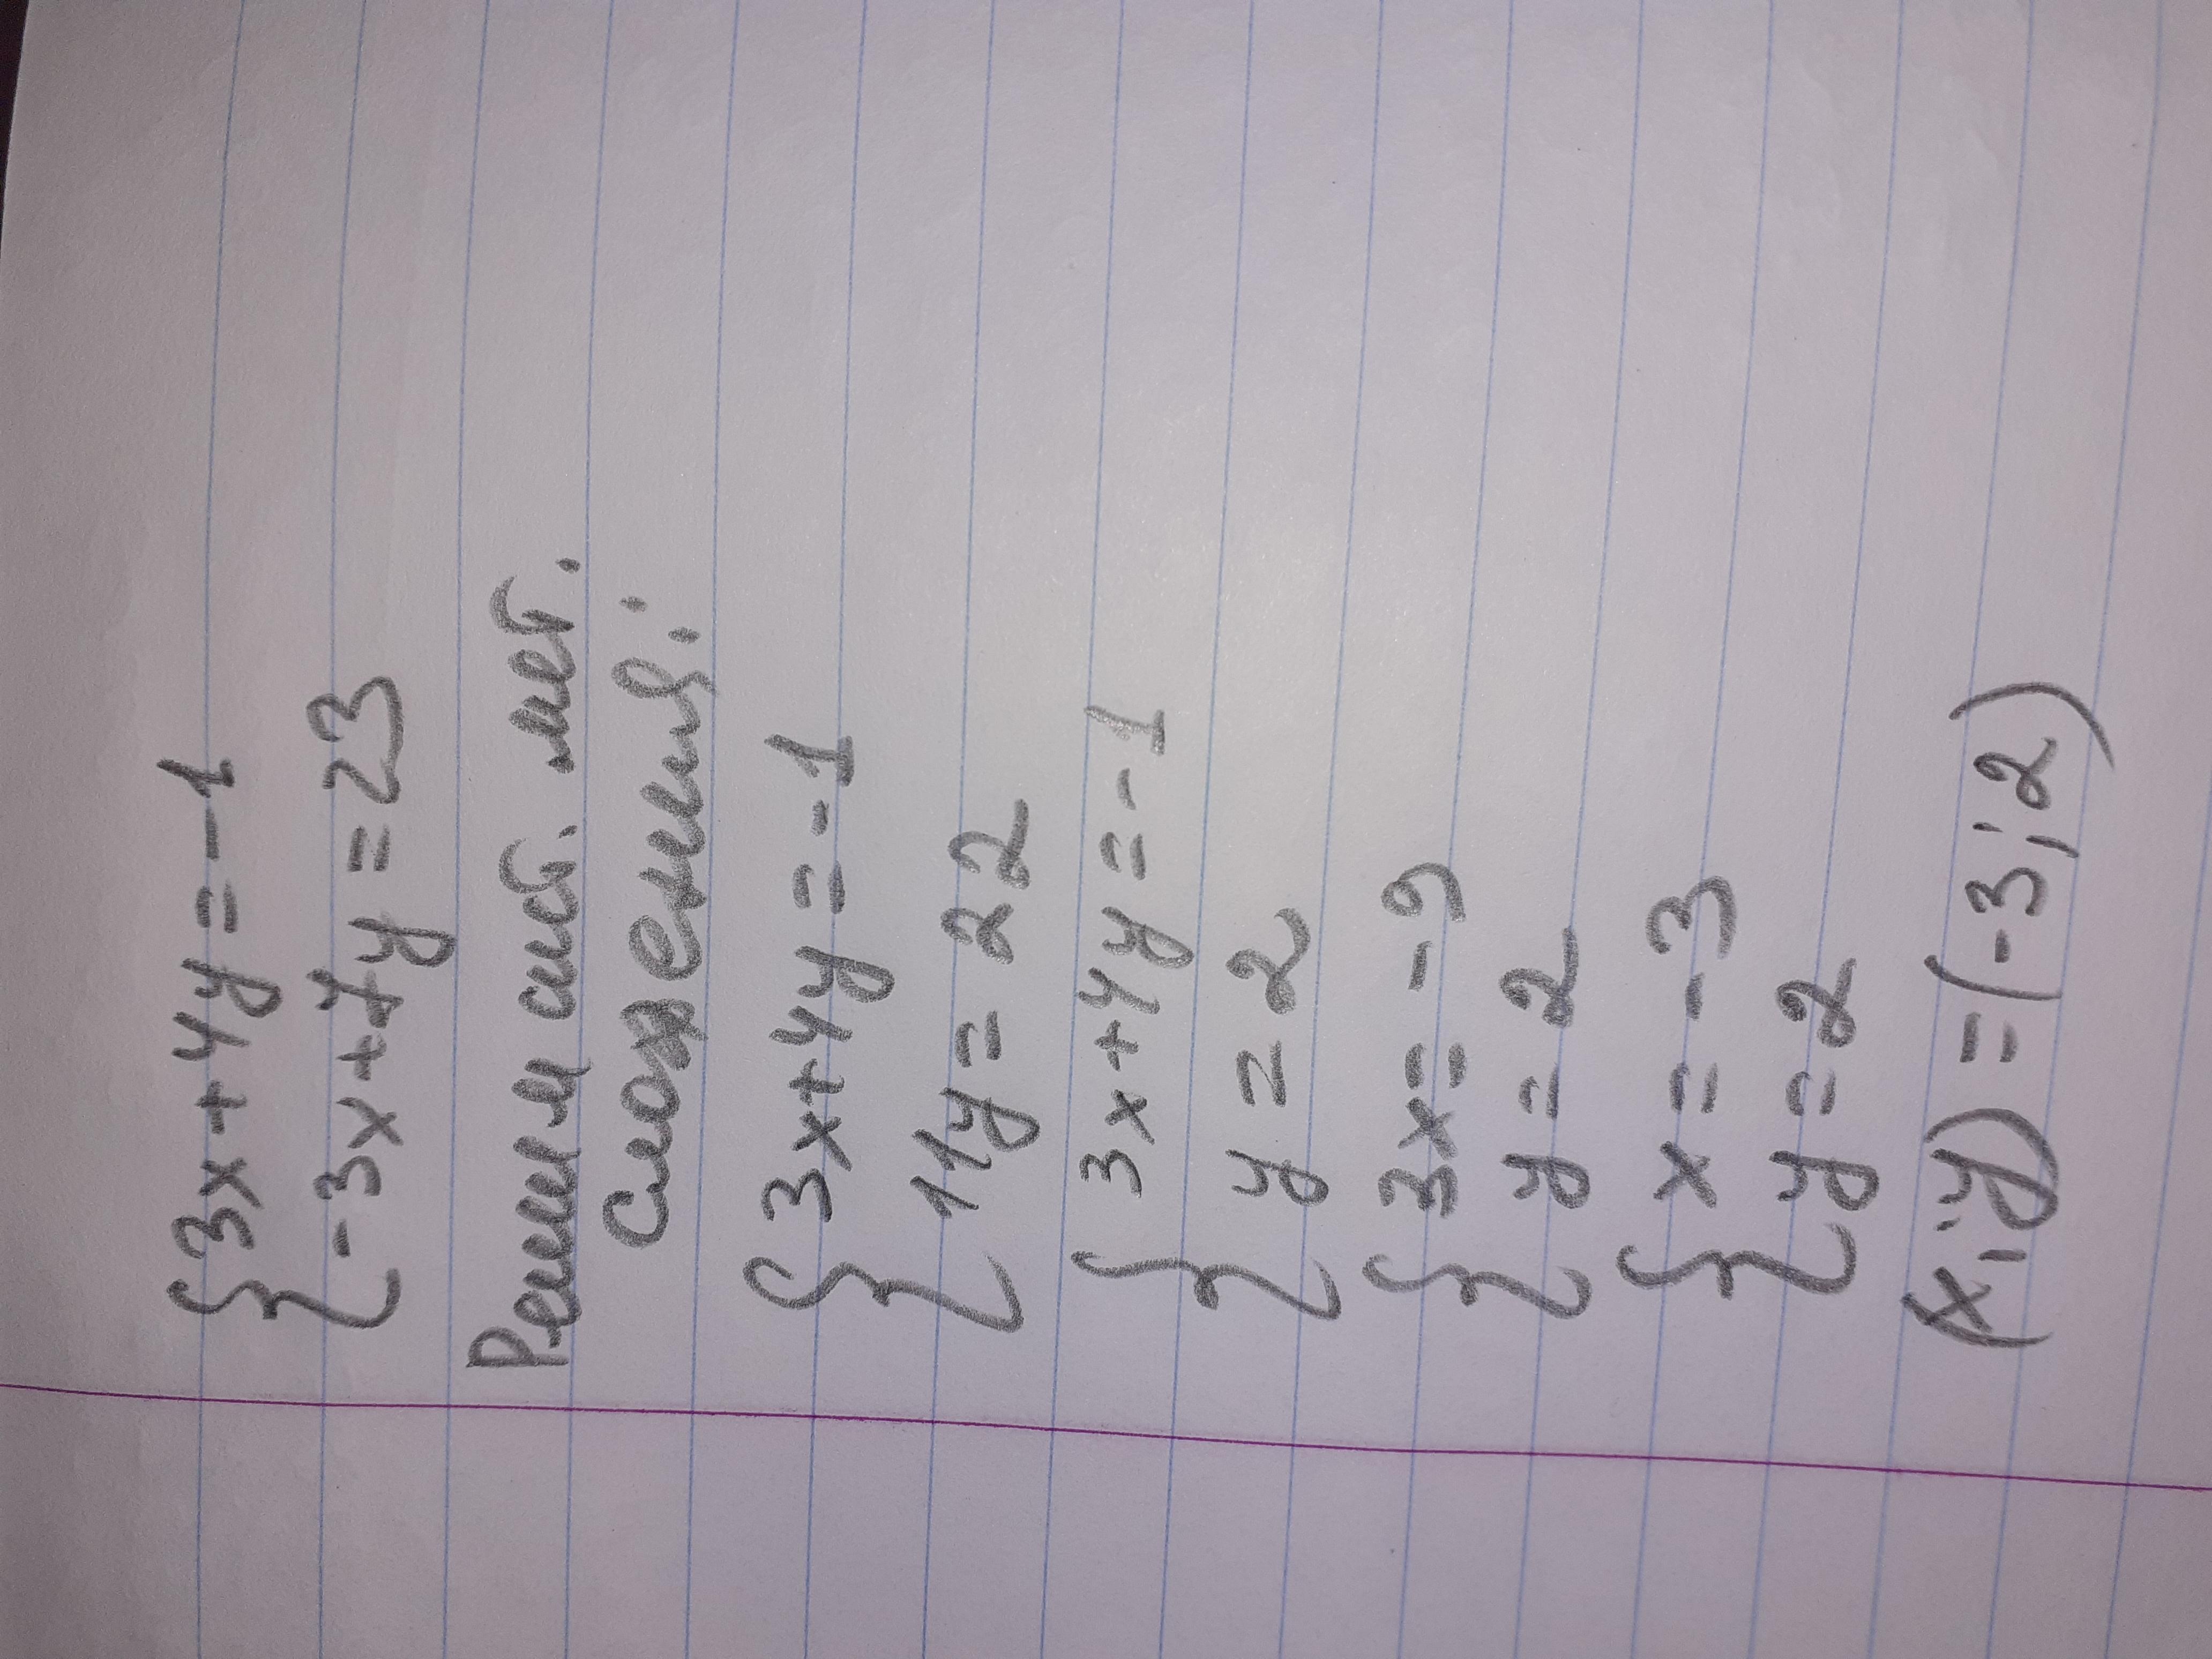 {3x+4y=-1
{-3x+7y=23
Решим сист. мет.
сложения:
{3x+4y=-1
11y=22
{3x+4y=-1
y=2
{3x=-9
y=2
{x=-3
y=2
(x;y)=(-3;2)